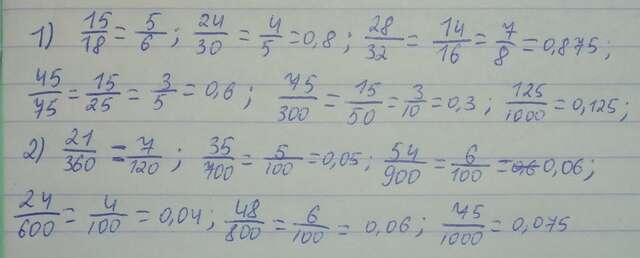 1) 15/18 = 5/6 ; 24/30 = 4/5 = 0,8 ; 28/32 = 14/16 = 7/8 = 0,875 ;
45/75 = 15/25 = 3/5 = 0,6 ; 75/300 = 15/50 = 3/10 = 0,3 ; 125/1000 = 0,125 ;
2) 21/360 = 7/120 ; 35/700 = 5/100 = 0,05 ; 54/900 = 6/100 = 0,06 ;
24/600 = 4/100 = 0,04 ; 48/800 = 6/100 = 0,06 ; 75/1000 = 0,075